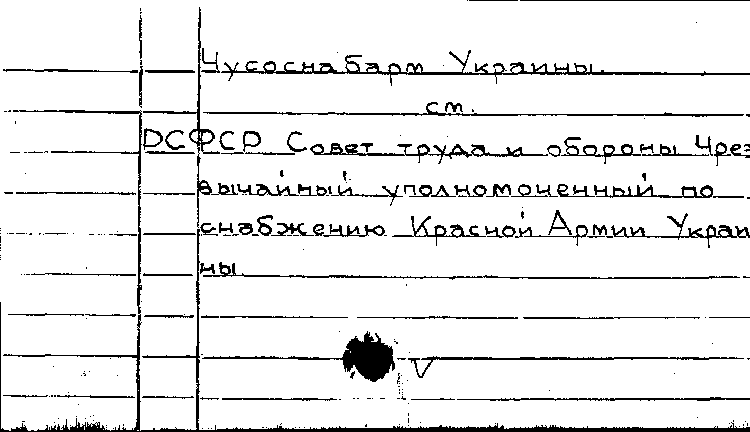 Чусоснабарм Украины.
см.
РСФСР Совет труда и обороны Чрез
вычайный уполномоченный по
снабжению Красной Армии Украи
ны.
V